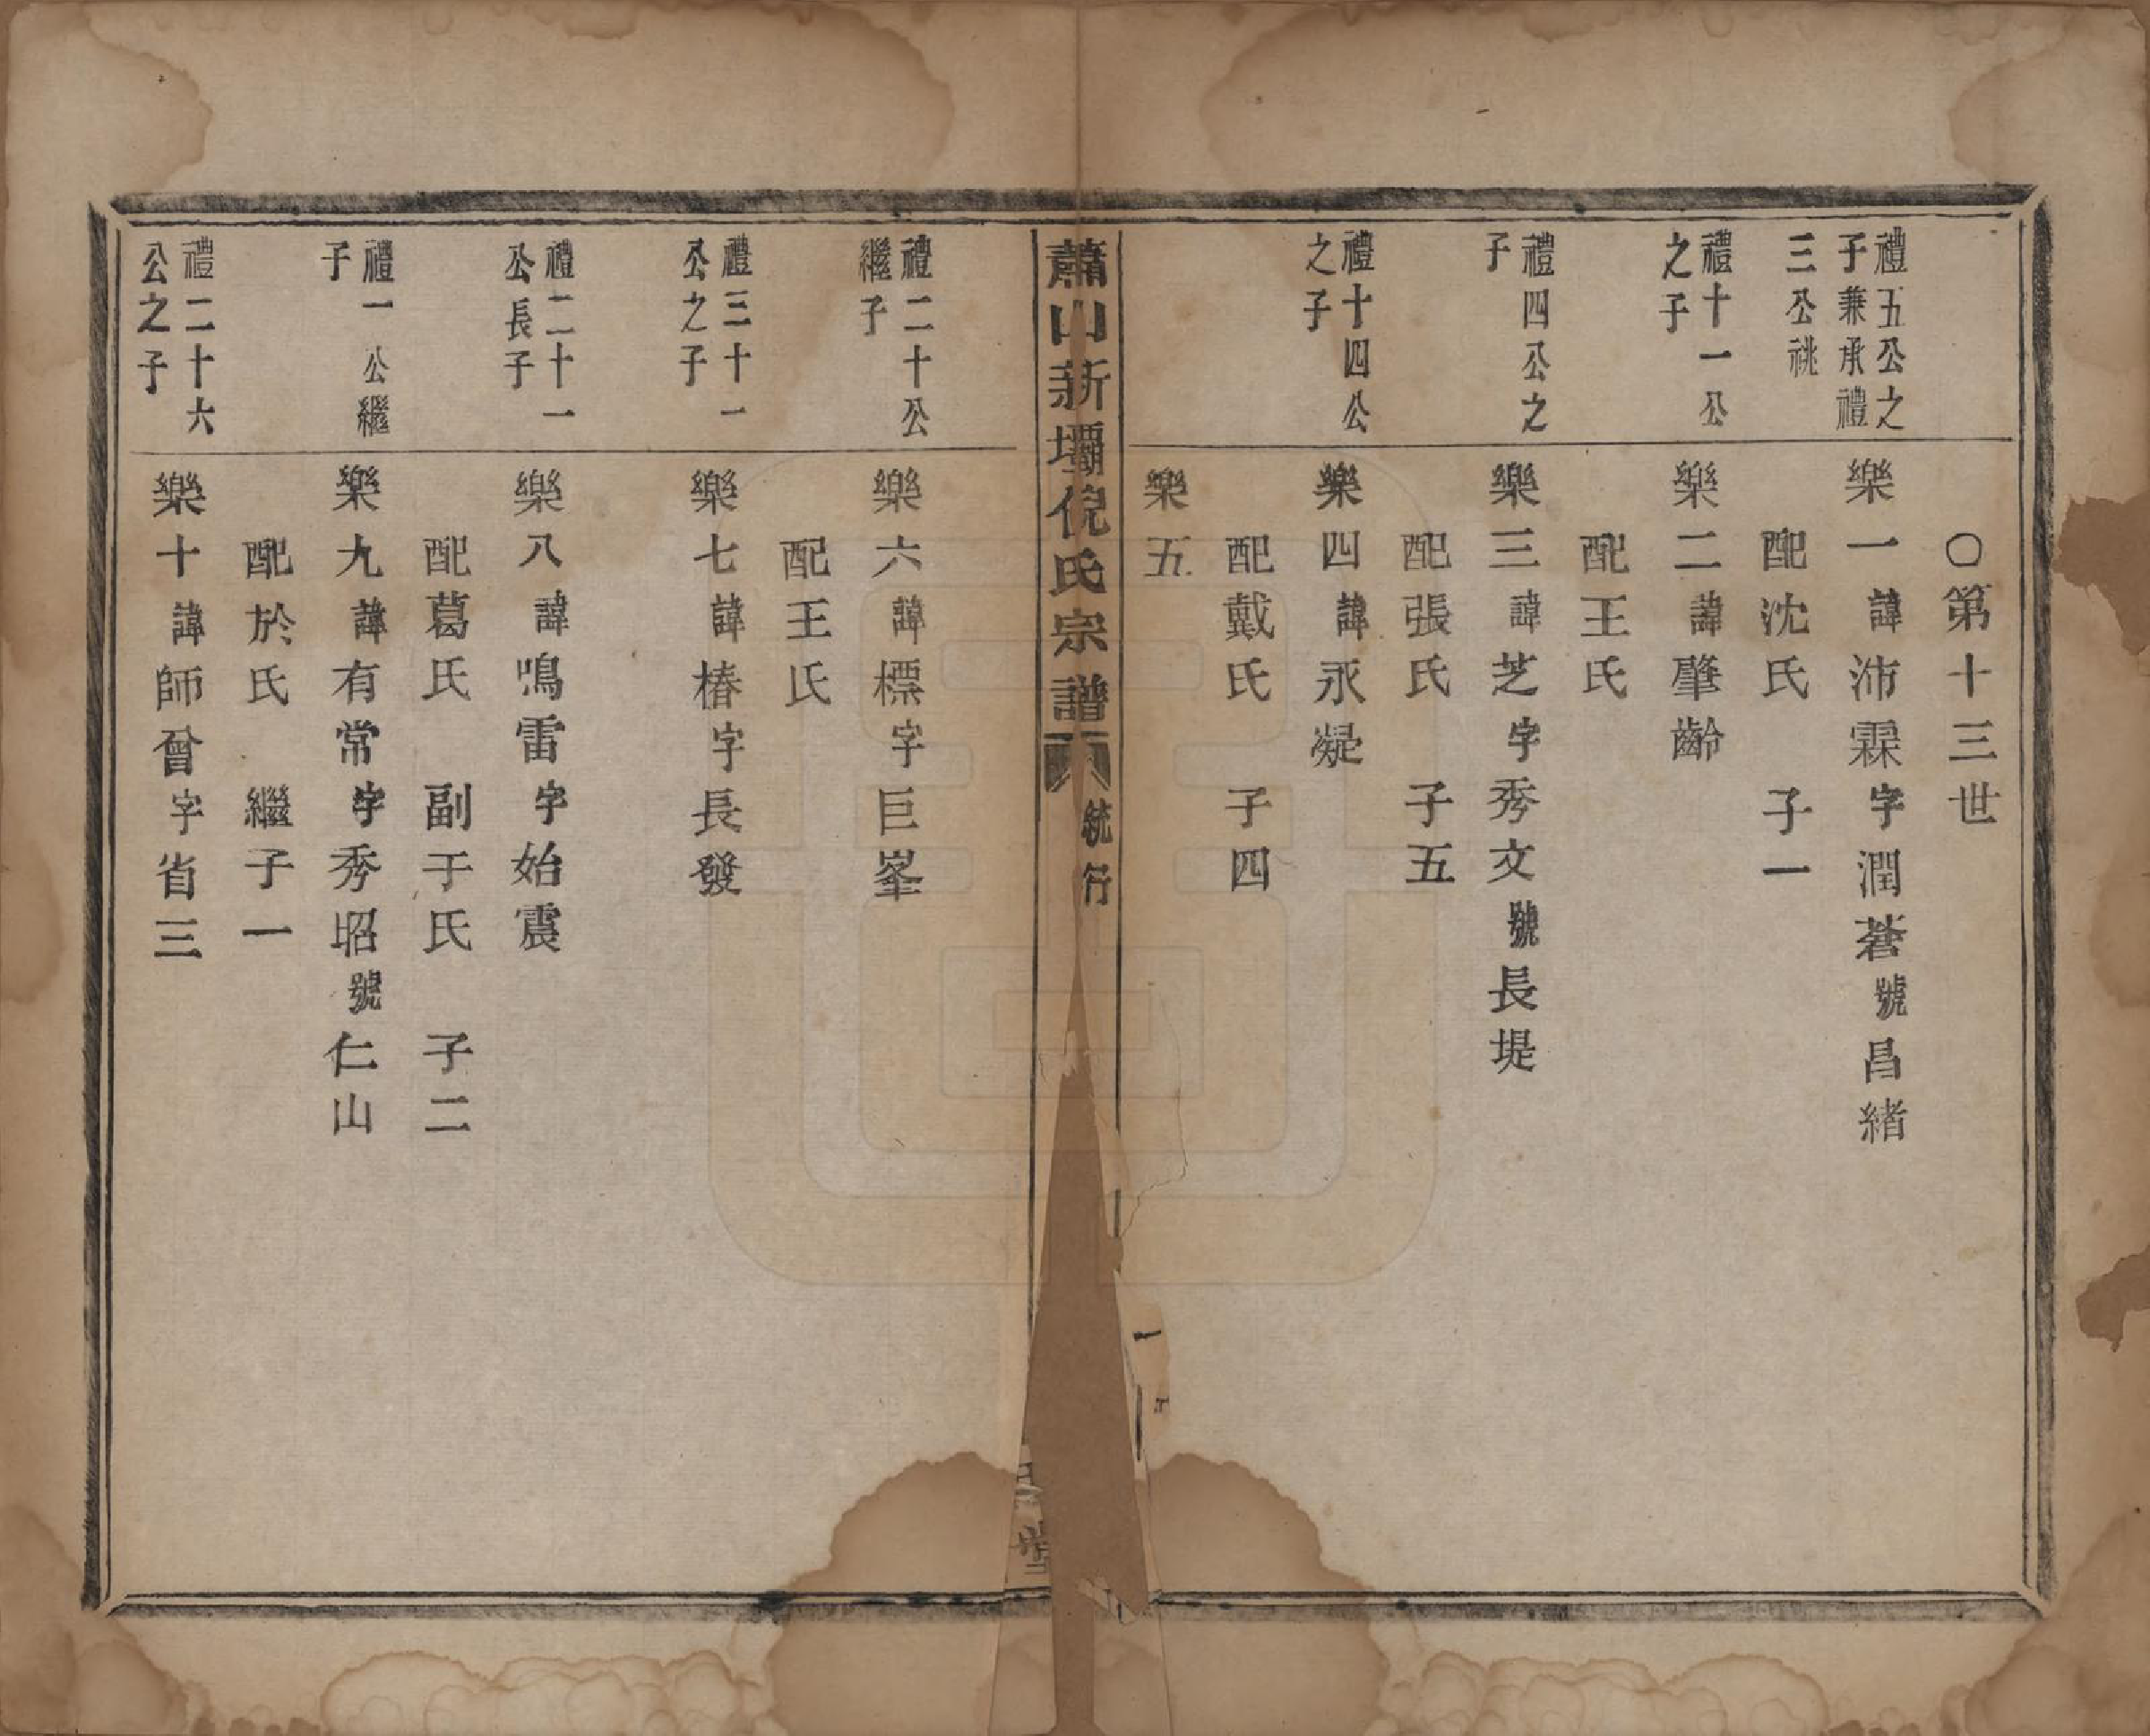 〇第十三世
禮五公之
子兼承禮
三公祧
樂一諱沛霖字潤蒼號昌緒
配沈氏　子一
禮十一公
之子
樂二諱肇齡
配王氏
禮四公之
子
樂三諱芝字秀文號長堤
配張氏　子五
禮十四公
之子
樂四諱永凝
配戴氏　子四
樂五
蕭山新壩倪氏宗譜
統行
一
堂
禮二十公
繼子
樂六諱標字巨峯
配王氏
禮三十一
公之子
樂七諱椿字長發
禮二十一
公長子
樂八諱鳴雷字始震
配葛氏　副于氏　子二
禮一公繼
子
樂九諱有常字秀昭號仁山
配於氏　繼子一
禮二十六
公之子
樂十諱師曾字省三